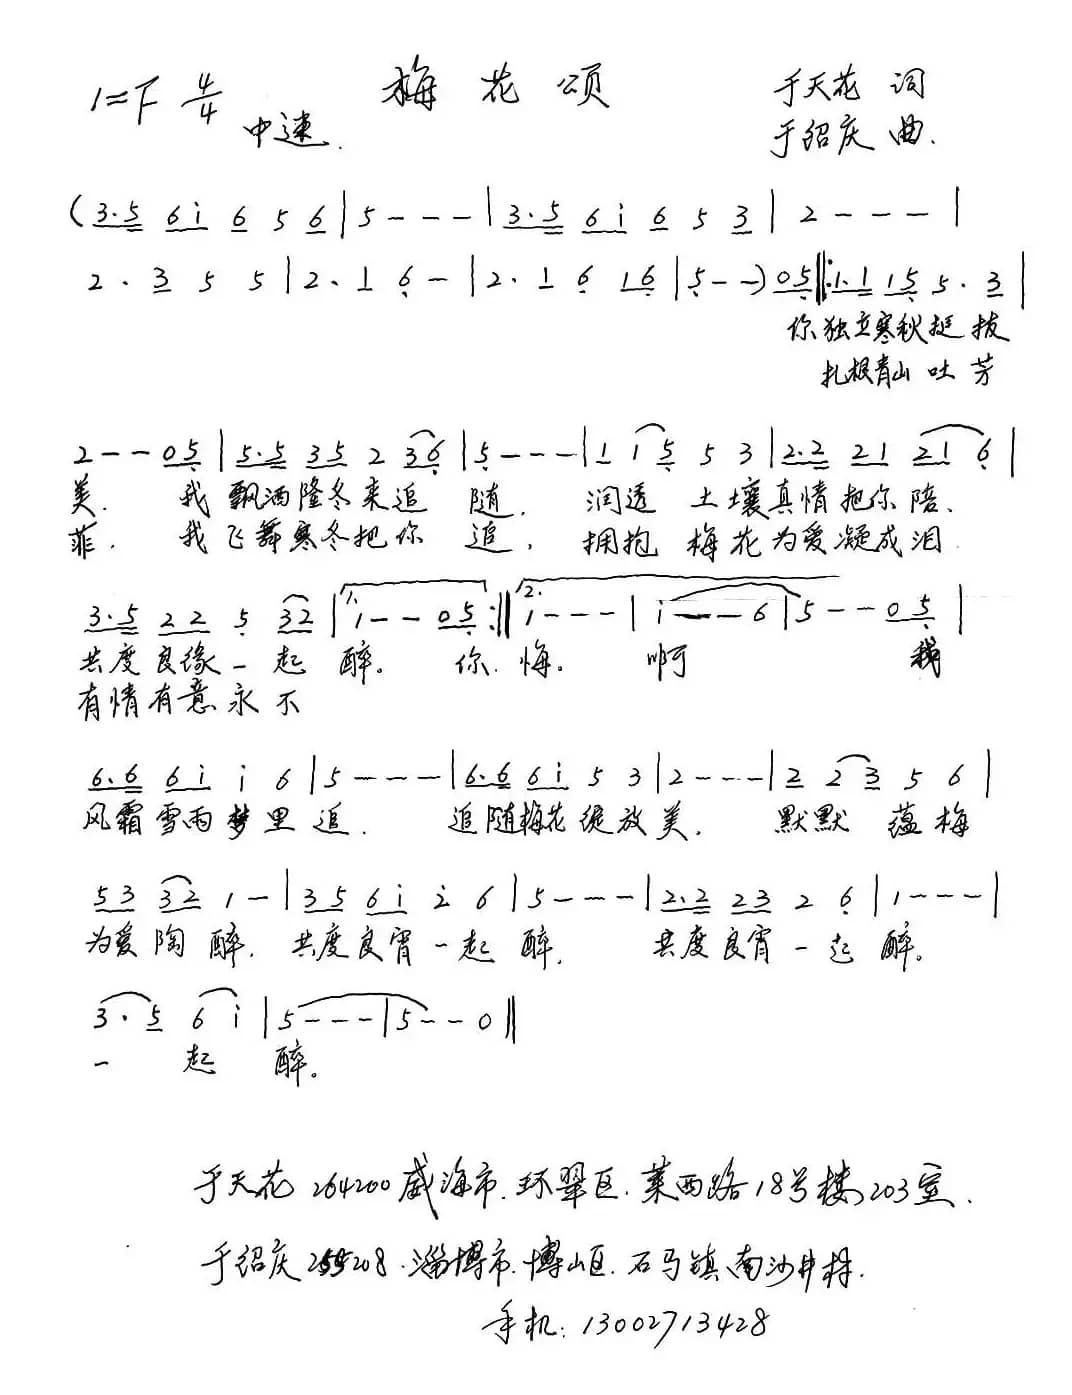 1=F 4/4 梅花颂 于天花 词
中速. 于绍庆 曲.
(3.5 6i 6 5 6|5---|3.5 6i 6 5 3|2---|
2.3 5 5|2.1 6-|2.1 6 16|5--)05‖:1.1 15 5.3|
你独立寒秋挺拔
扎根青山吐芳
2--05|5.5 35 2 36|5---|1 15 5 3|2.2 21 21 6|
美. 我飘洒隆冬来追随. 润透土壤真情把你陪.
菲. 我飞舞寒冬把你追. 拥抱梅花为爱凝成泪.
3.5 22 5 32|1.1--05:‖2.1---|i---6|5--05|
共度良缘一起醉。你.悔。啊 我
有情有意永不
6.6 6i i 6|5---|6.6 6i 5 3|2---|2 23 5 6|
风霜雪雨梦里追. 追随梅花绽放美. 默默蕴梅
53 32 1-|35 6i 2 6|5---|2.2 23 2 6|1---|
为爱陶醉. 共度良宵一起醉. 共度良宵一起醉。
3.5 6i|5---|5--0‖
一起醉。
于天花 264200威海市.环翠区.莱西路18号楼203室.
于绍庆 255208.淄博市.博山区.石马镇.南沙井村.
手机:13002713428